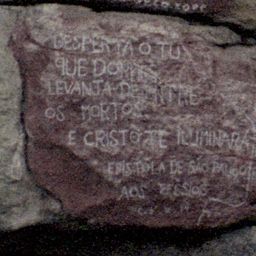 DESPERTA O TU
QUE DORMES
LEVANTA DE ENTRE
OS MORTOS
E CRISTO TE ILUMINARÁ
EPISTOLA DE SÃO PAULO
AOS